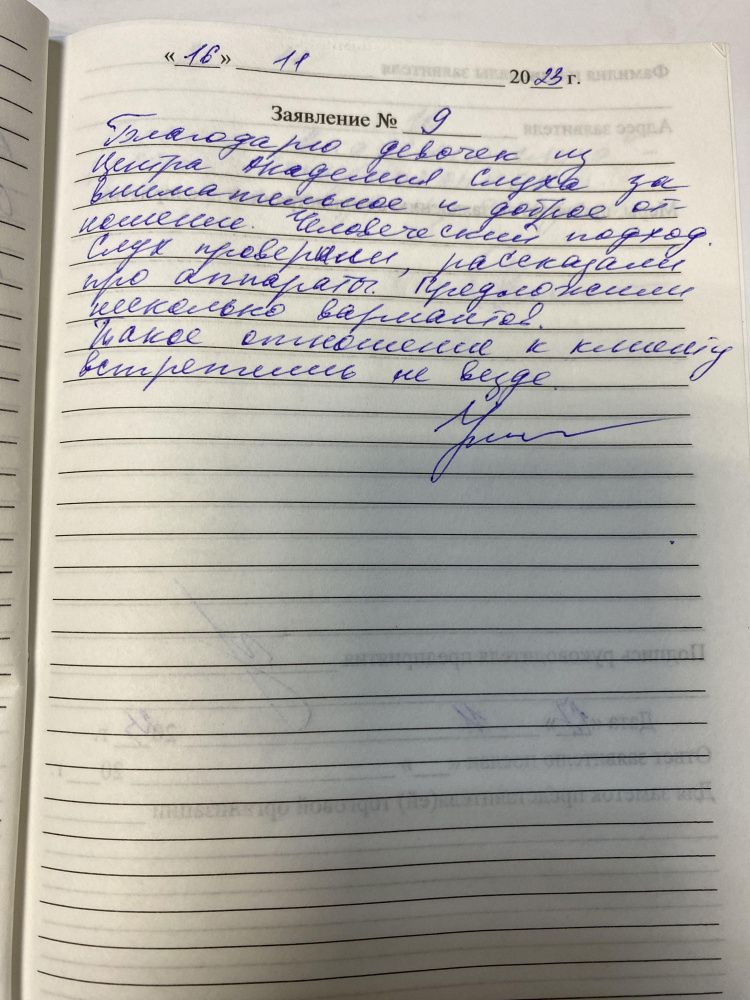 « 16 » 11 2023 г.
Заявление № 9
Благодарю девочек из
Центра Академия Слуха за
внимательное и доброе от-
ношение. Человеческий подход.
Слух проверили, рассказали
про аппараты. Предложили
несколько вариантов.
Такое отношение к клиенту
встретишь не везде.